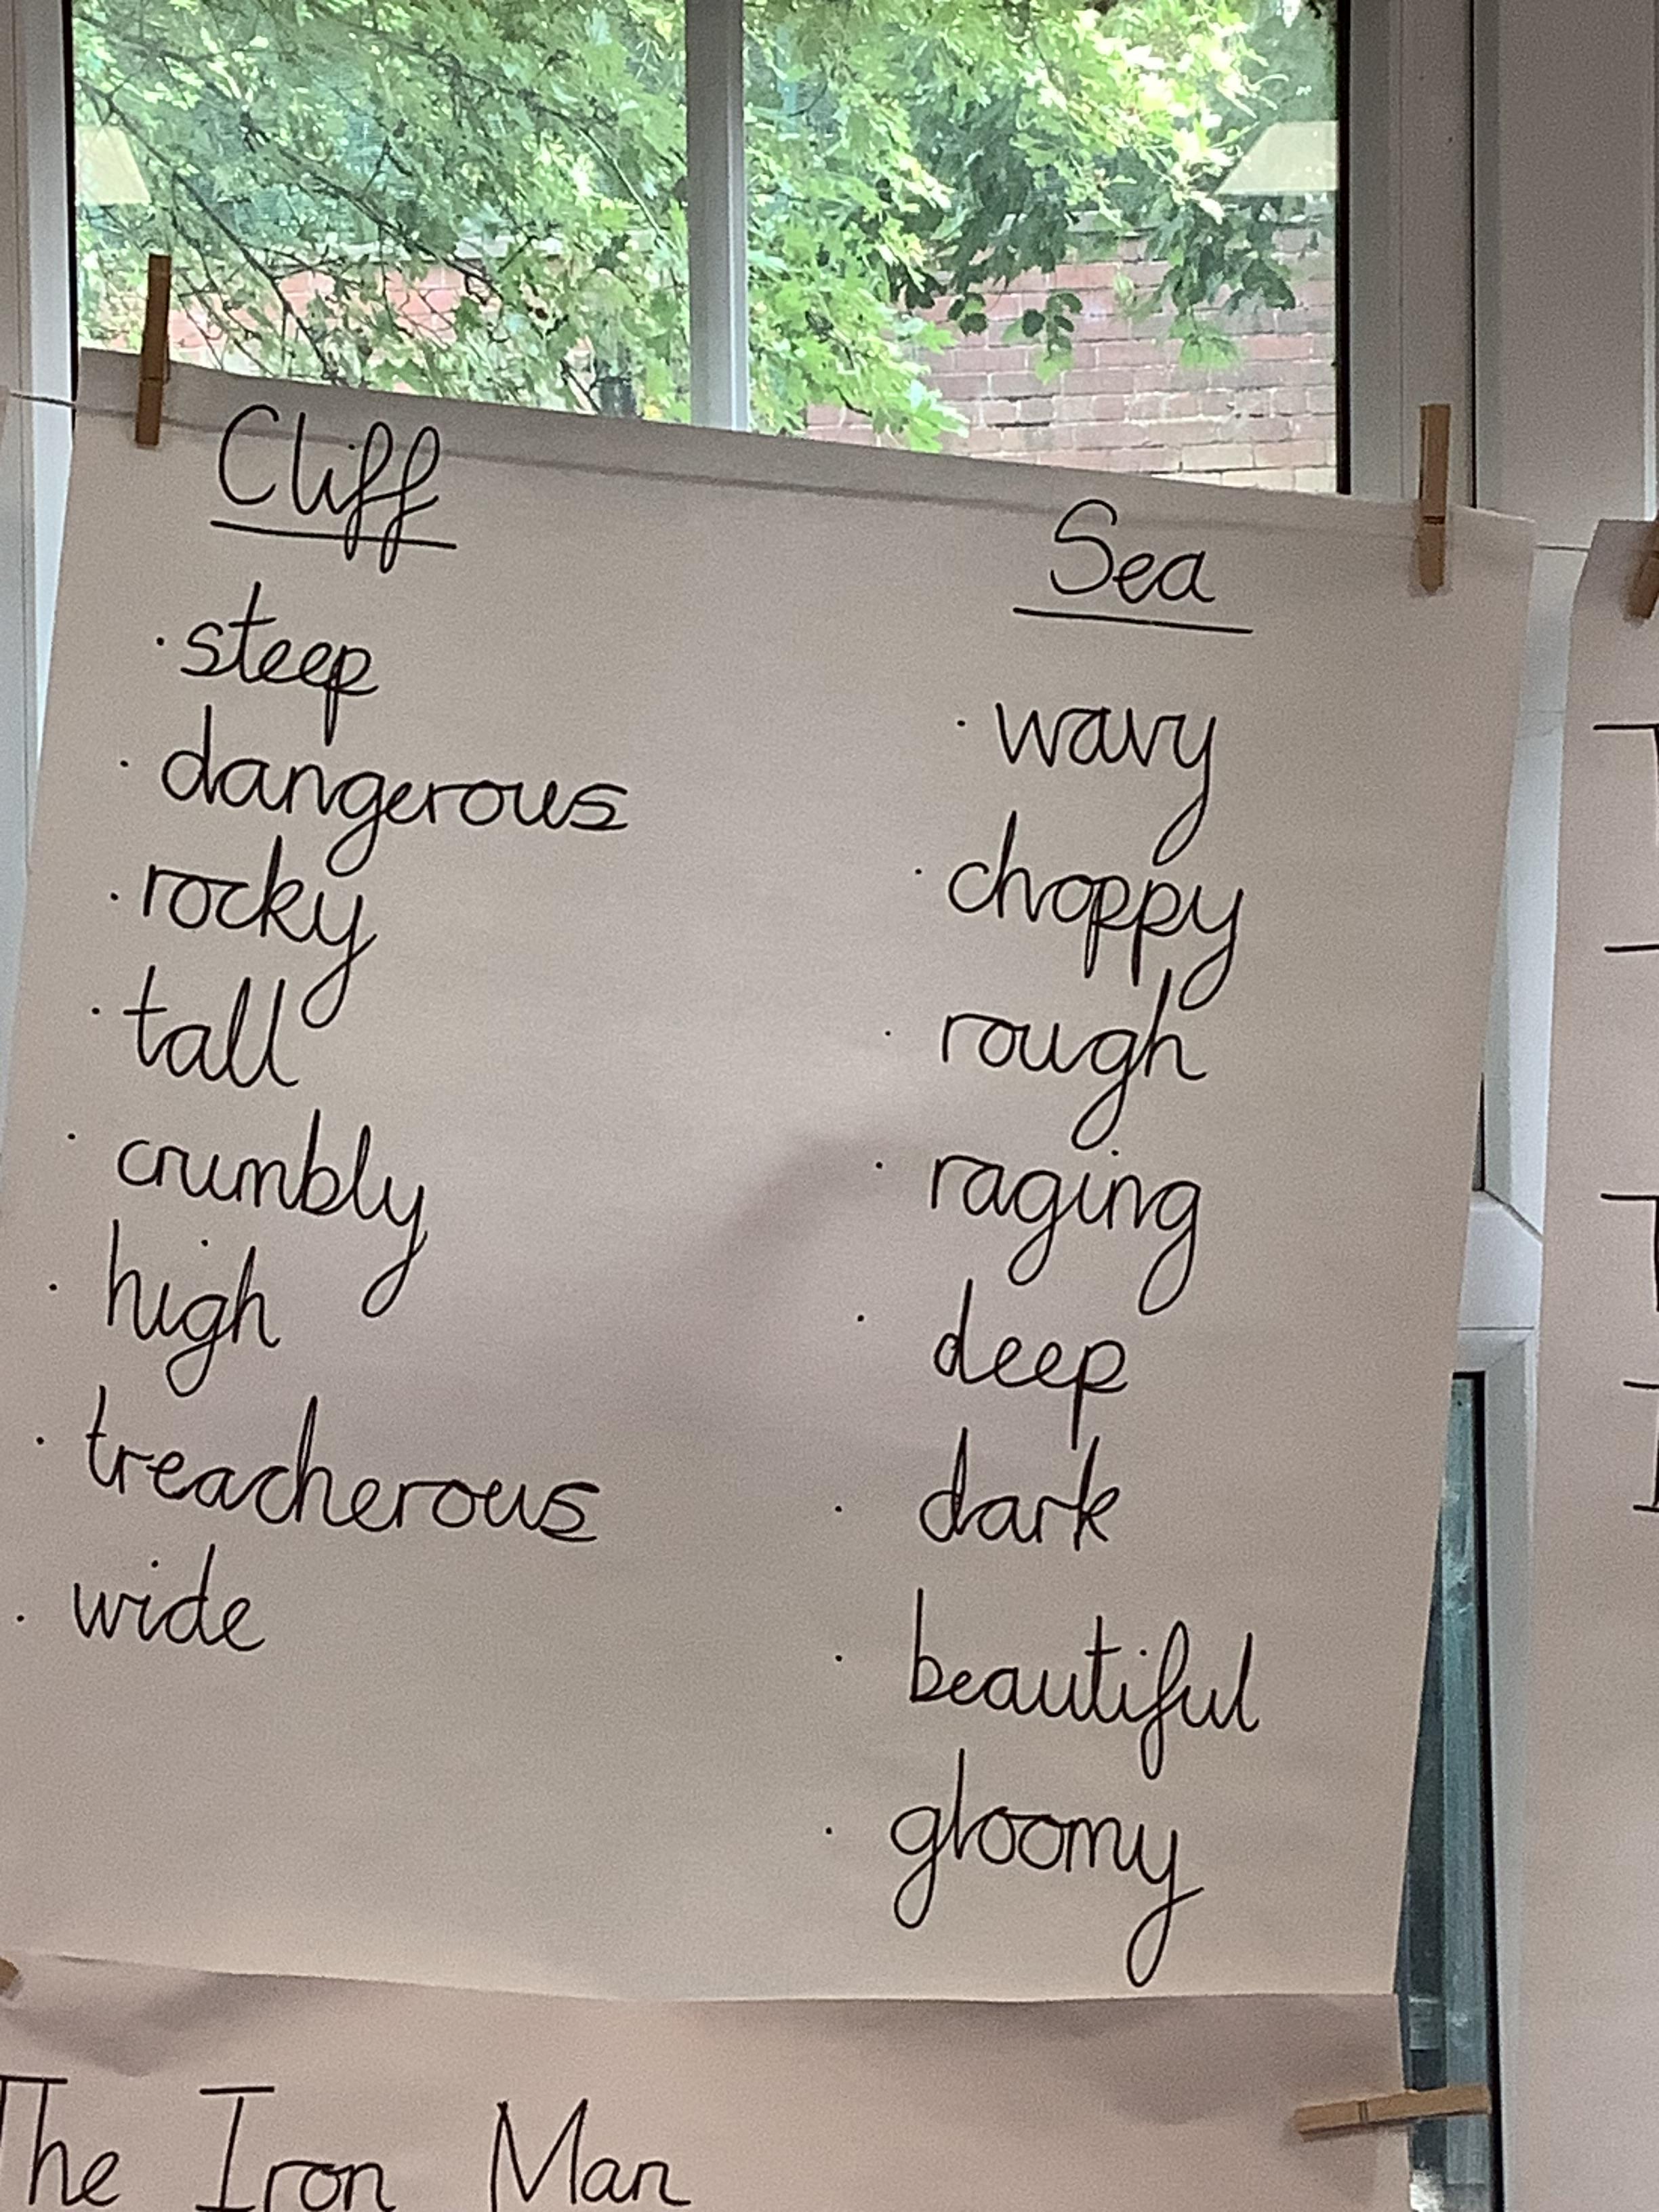 Cliff
· steep
· dangerous
· rocky
· tall
· crumbly
· high
· treacherous
· wide
Sea
· wavy
· choppy
· rough
· raging
· deep
· dark
· beautiful
· gloomy
The Iron Man